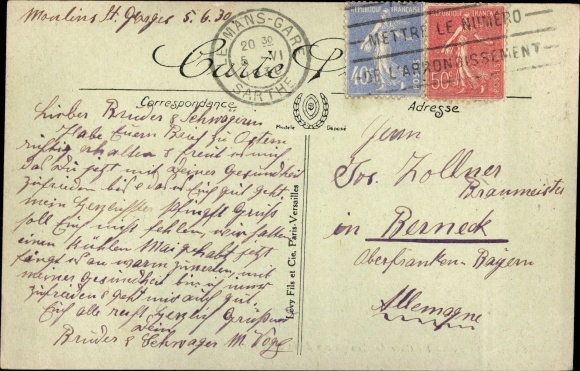 Moulins St. Georges 5.6.30
LE MANS-GARE
20 30
5 VI
SARTHE
REPUBLIQUE FRANÇAISE
40c
50c
METTRE LE NUMÉRO
DE L'ARRONDISSEMENT
Carte
Correspondance
Adresse
Modèle Déposé
Lieber Bruder & Schwägerin
Habe Euern Brief zu Ostern
richtig erhalten & freut mich
das Du jetzt mit Deiner Gesundheit
zufrieden bist & das es Euch gut geht,
mein herzlichster Pfingst Gruss
soll Euch nicht fehlen, wir hatten
einen kühlen Mai gehabt jetzt
fängts an warm zu werden, mit
meiner Gesundheit bin ich immer
zufrieden & geht mir auch gut.
Euch alle recht herzlich Grüssend
Dein
Bruder & Schwager M. Vogel
Lévy Fils et Cie, Paris-Versailles
Herrn
Jos. Zollner
Braumeister
in Berneck
Oberfranken-Bayern
Allemagne